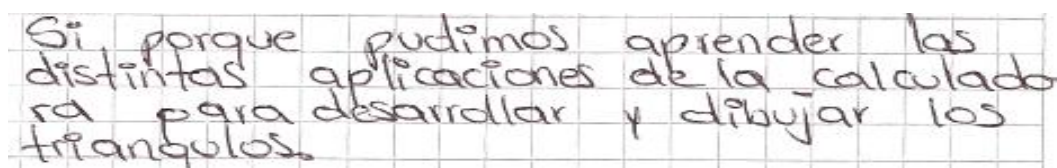 Si, porque pudimos aprender las
distintas aplicaciones de la calculado
ra para desarrollar y dibujar los
triangulos.